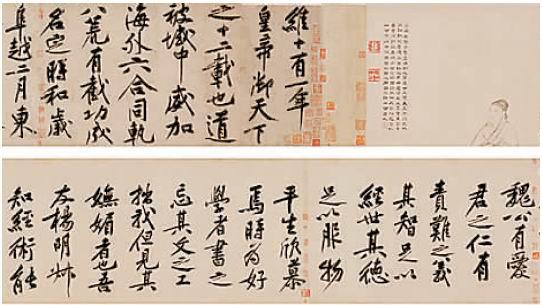 維十有一年
皇帝御天下
之十二載也道
被域中威加
海外六合同軌
八荒有截功成
名定時和歲
阜越二月東
魏公有愛
君之仁有
責難之義
其智足以
經世其德
足以服物
平生欣慕
焉時為好
學者書之
忘其文之工
拙我但見其
嫵媚者也吾
友楊明叔
知經術能